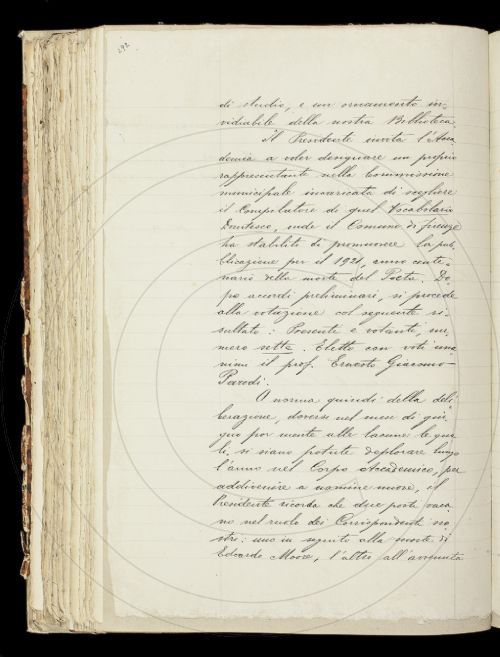 292
di studio, e un ornamento in-
vidiabile della nostra Biblioteca.
Il Presidente invita l'Acca-
demia a voler designare un proprio
rappresentante nella Commissione
municipale incaricata di scegliere
il Compilatore di quel Vocabolario
Dantesco, onde il Comune di Firenze
ha stabilito di promuovere la pub-
blicazione per il 1921, anno cente-
nario della morte del Poeta. Do-
po accordi preliminari, si procede
alla votazione col seguente ri-
sultato: Presenti e votanti, nu-
mero sette. Eletto con voti una-
nimi il prof. Ernesto Giacomo
Parodi.
A norma quindi della deli-
berazione, doversi nel mese di giu-
gno por mente alle lacune le qua-
li, si siano potute deplorare lungo
l'anno nel Corpo Accademico, per
addivenire a nomine nuove, il
Presidente ricorda che due posti vaca-
no nel ruolo dei Corrispondenti no-
stri: uno in seguito alla morte di
Edoardo Moore, l'altro all'avvenuta